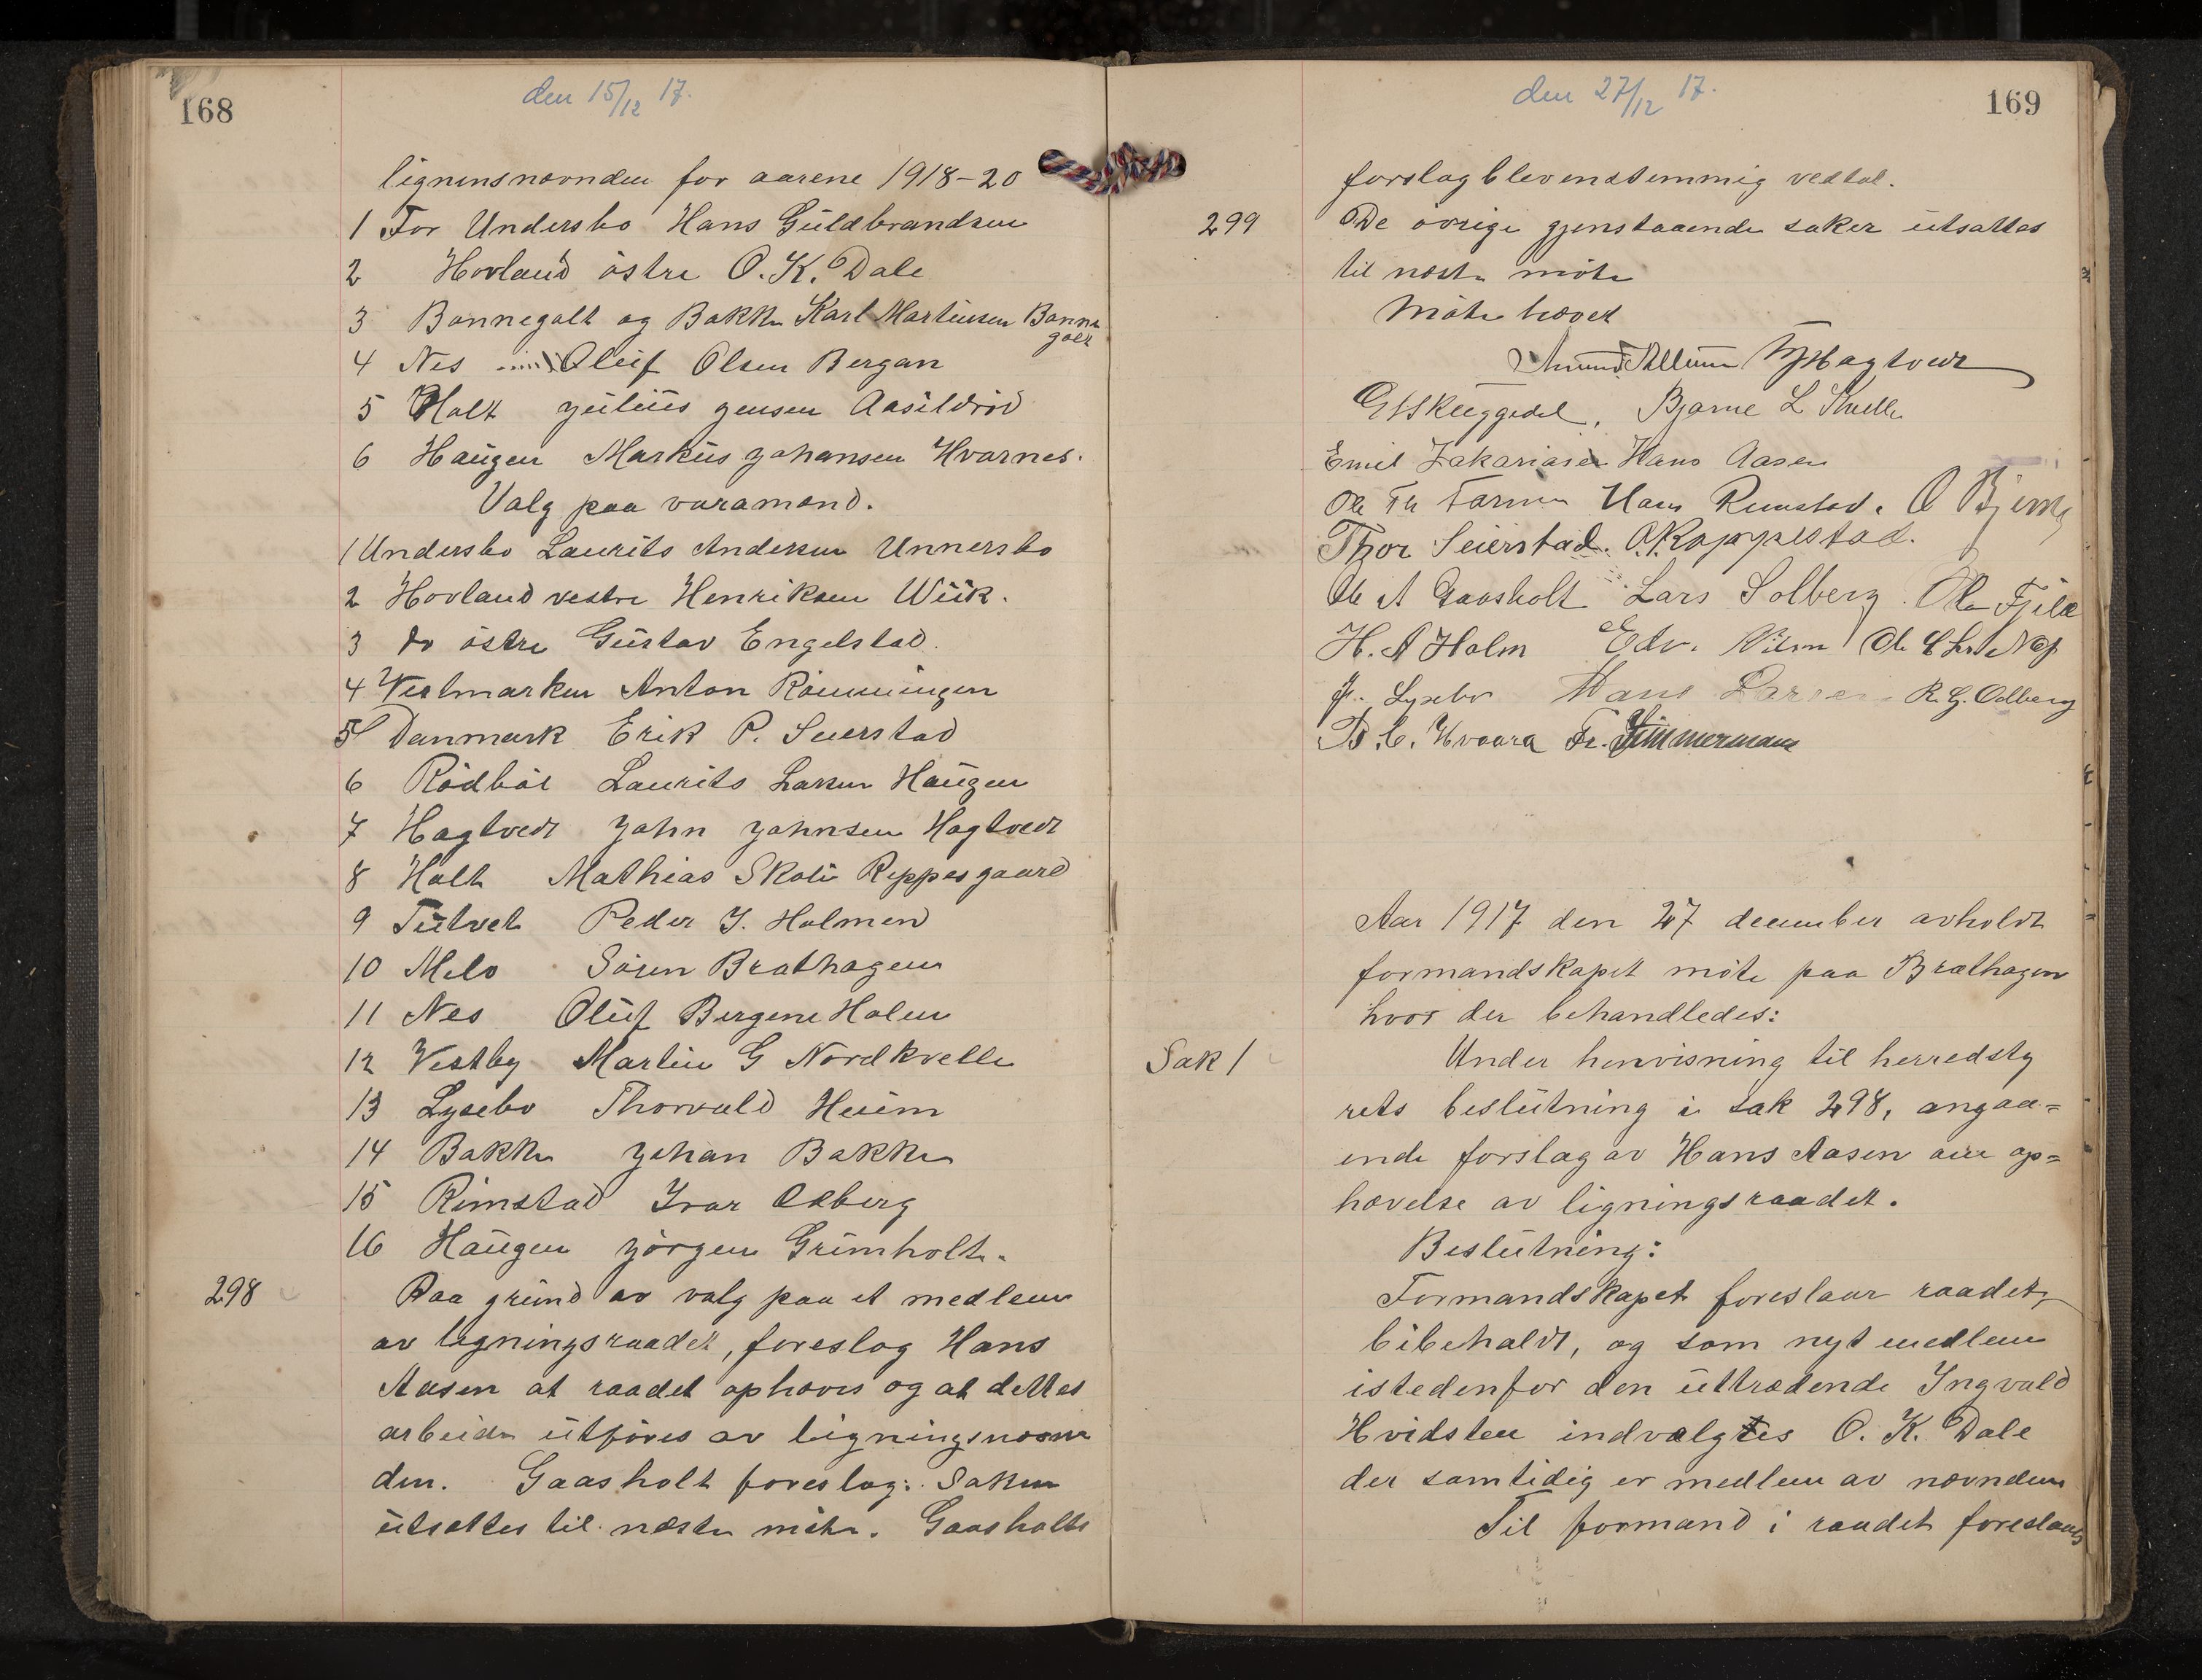 168
den 15/12 17.
ligninsnævnden for aarene 1918-20
1 For Undersbo Hans Guldbrandsen
2 Hovland østre O. K. Dale
3 Bonnegolt og Bakke Karl Martinsen Bonne
golt
4 Nes Oluf Olsen Bergan
5 Holt Julius Jensen Aasildrød
6 Haugen Markus Johansen Hvarnes.
Valg paa varamænd.
1 Undersbo Laurits Andersen Unnersbo
2 Hovland vestre Henriksen Wiik.
3 do østre Gustav Engelstad.
4 Vestmarken Anton Rønningen
5 Danmark Erik P. Seierstad
6 Rødbøl Laurits Larsen Haugen
7 Hagtvedt John Johnsen Hagtvedt
8 Holt Mathias Skoli Reppesgaard
9 Tutvet Peder J. Holmen
10 Melo Søren Brathagen
11 Nes Oluf Bergene Holm
12 Vestby Martin G Nordkvelle
13 Lysebo Thorvald Heim
14 Bakke Johan Bakke
15 Rimstad Ivar Odberg
16 Haugen Jørgen Grimholt.
298
Paa grund av valg paa et medlem
av ligningsraadet, foreslog Hans
Aasen at raadet ophæves og at dettes
arbeide utføres av ligningsnævn
den. Gaasholt foreslog: Saken
utsættes til næste møte. Gaasholts
169
den 27/12 17.
forslag blev enstemmig vedtat.
299
De øvrige gjenstaaende saker utsattes
til næste møte
Møte hævet
Amund Allum Hagtvedt
Skuggedal, Bjarne L Kvelle
Emil Zakariasen Hans Aasen
Ole Th Farmen Hans Rimstad. O Bjerke
Thor Seierstad. O. Koppestad.
Ole A Gaasholt Lars Solberg. Ole Fjeld
H. A Holm Edv. Ole Chr. Nes
Lysebo Hans Larsen R. G. Odberg
B. C. Hvaara Fr. Zimmermann
Aar 1917 den 27 december avholdt
formandskapet møte paa Brathagen
hvor der behandledes:
Sak 1
Under henvisning til herredsty
rets beslutning i sak 298, angaa=
ende forslag av Hans Aasen om op=
hævelse av ligningsraadet.
Beslutning:
Formandskapet foreslaar raadet,
bibeholdt, og som nyt medlem
istedenfor den uttrædende Ingvald
Hvidsten indvalgtes O. K. Dale
der samtidig er medlem av nævnden
Til formand i raadet foreslaaes